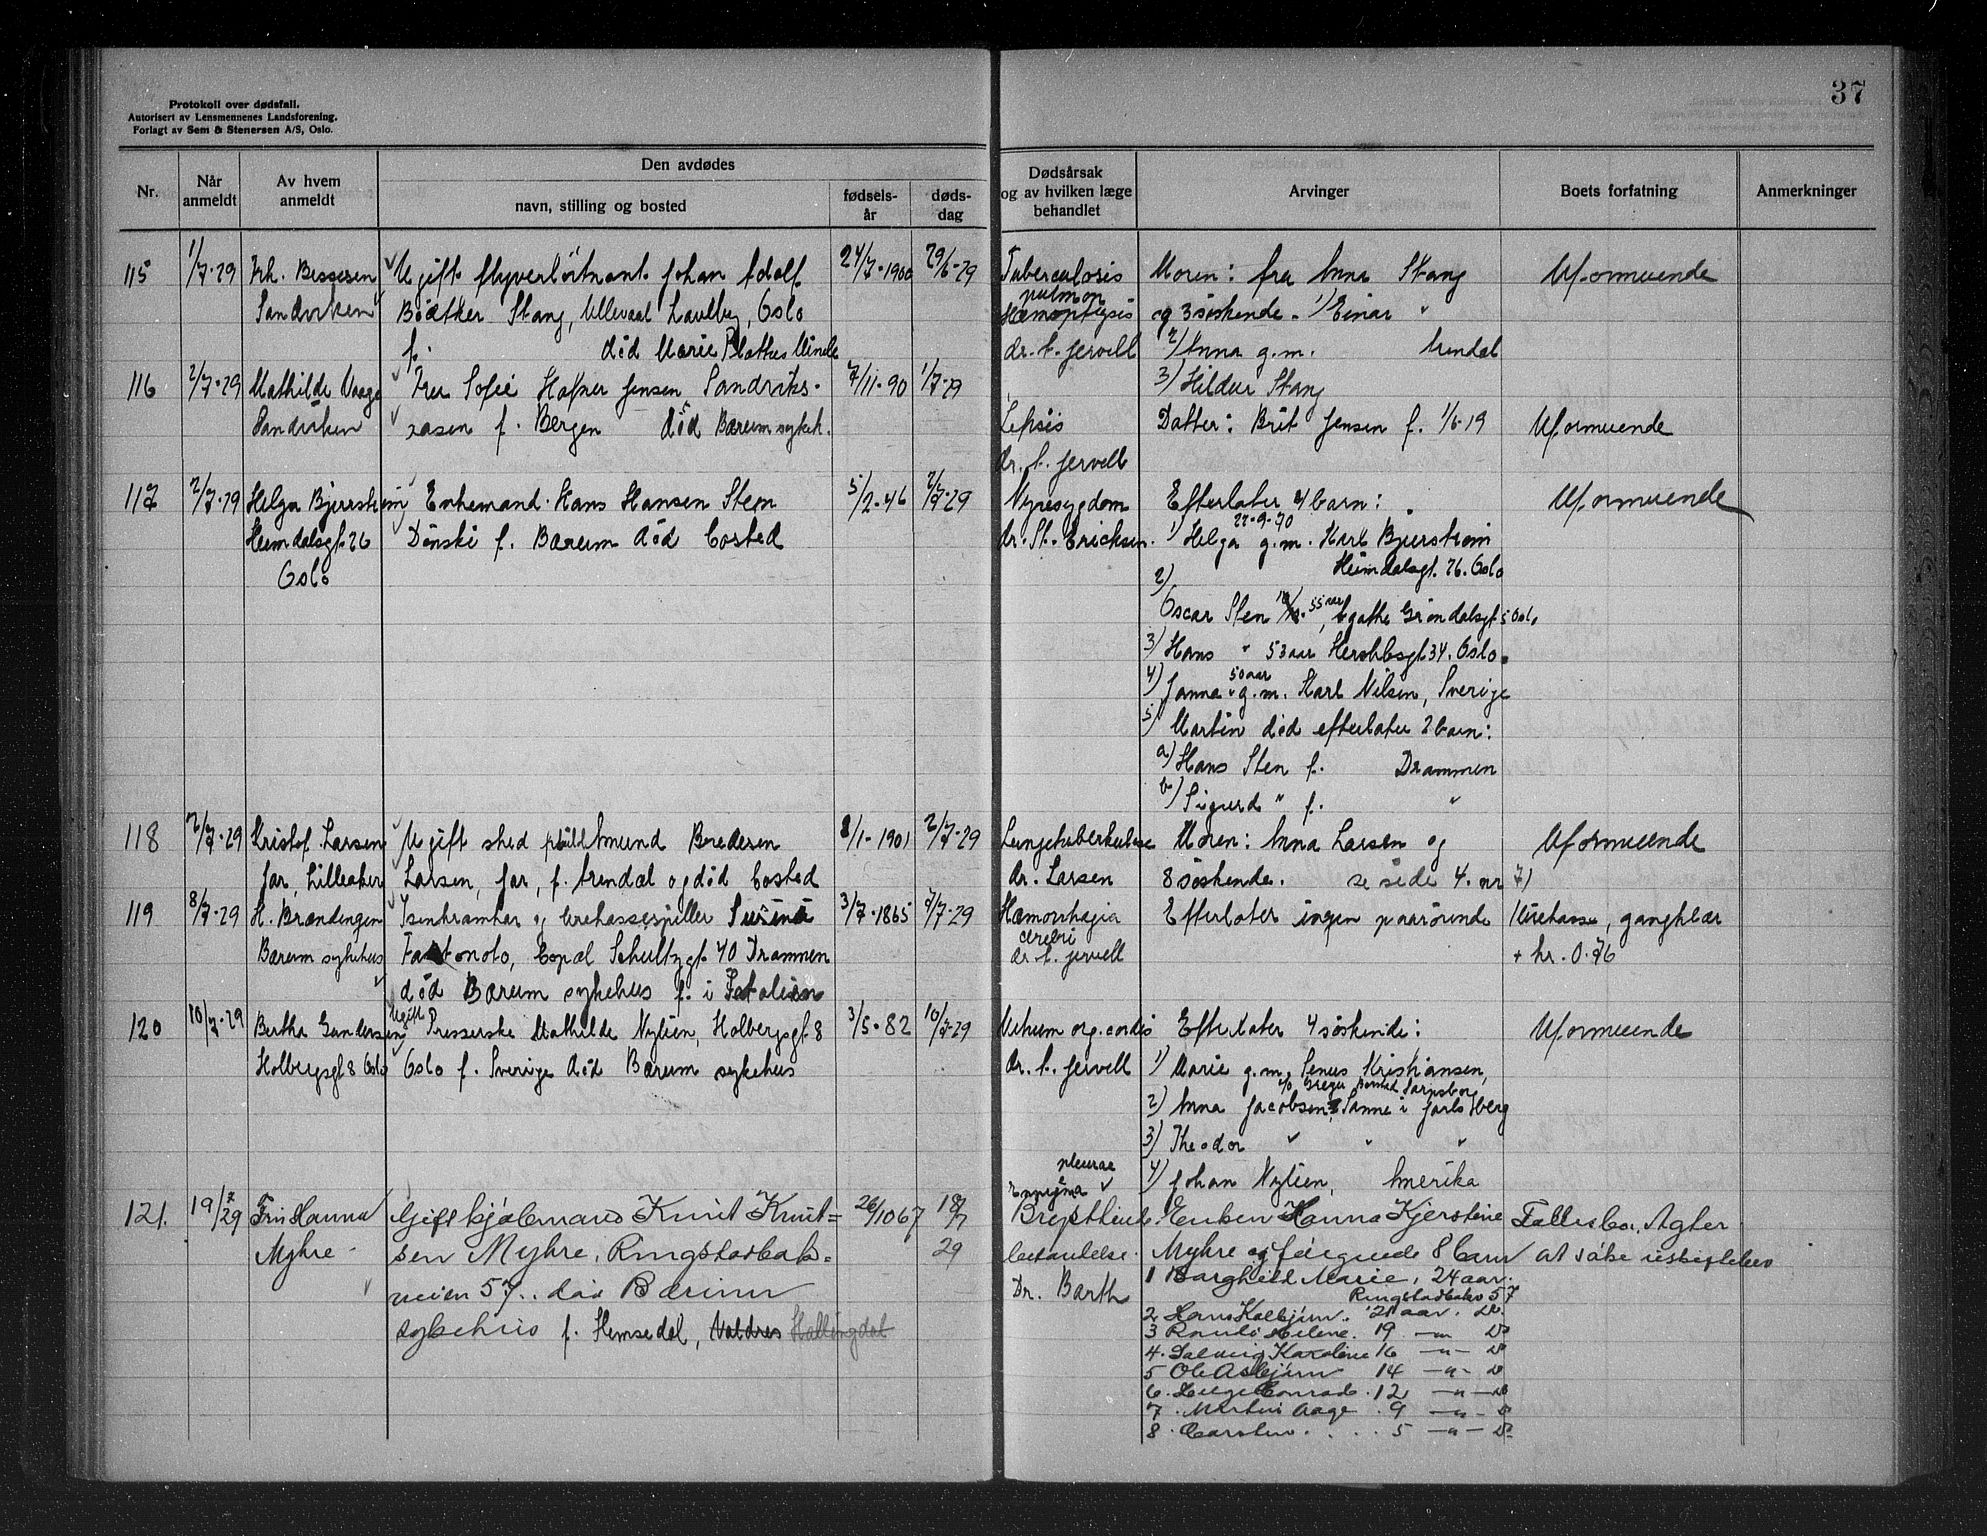 Protokoll over dødsfall.
Autorisert av Lensmennenes Landsforening.
Forlagt av Sem & Stenersen A/S, Oslo.
37
Nr.
Når anmeldt
Av hvem anmeldt
Den avdødes
navn, stilling og bosted
fødsels-år
døds-dag
Dødsårsak og av hvilken læge behandlet
Arvinger
Boets forfatning
Anmerkninger
115
1/7-29
Sandviken
Ugift flyverløitnant Johan Adolf
Stang, Ullevaal Oslo
f. død Marie Minde
24/7-1900
29/6-29
Tuberculosis
pulmon
Hæmoptysis
dr. Jervell
Moren: fra Anna Stang
og 3 søskende - 1) Einar "
2) Anna g.m. Arendal
3) Hildur Stang
Uformuende
116
2/7-29
Mathilde Vaage
Sandviken
Fru Sofie Jensen, Sandviks-
aasen f. Bergen død Bærum sykeh.
7/11-90
1/7-29
Sepsis
dr. Jervell
Datter: Brit Jensen f. 1/6-19
Uformuende
117
2/7-29
Helga Bjurstrøm
Heimdalsgt. 26
Oslo
Enkemand Hans Hansen Sten
Dønski f. Bærum død bosted
5/2-46
2/7-29
Nyresygdom
dr. St. Ericksen
Efterlater 4 barn:
22-9-70
1) Helga g.m. Karl Bjurstrøm
Heimdalsgt. 26. Oslo
2) Oscar Sten 55 aar, Agathe Grøndalsgt 5 Oslo
3) Hans " 53 aar 34. Oslo.
50 aar
4) Janna " g.m. Karl Nilsen, Sverige
5) Martin død efterlater 2 barn:
a) Hans Sten f. Drammen
b) Sigurd " f. "
Uformuende
118
2/7-29
Kristof. Larsen
Jar, Lilleaker
Ugift Amund
Larsen, Jar, f. Arendal og død bosted
8/1-1901
2/7-29
Lungetuberkulose
dr. Larsen
Moren: Anna Larsen og
8 søskende. se side 4. nr 7)
Uformuende
119
8/7-29
H. Brændengen
Bærum sykehus
Isenkramhar og lirekassespiller
Schultzgt. 40 Drammen
død Bærum sykehus f. i Italien
3/7-1865
7/7-29
Hæmorrhagia
cerebri
dr. Jervell
Efterlater ingen paarørende
lirekasse, gangklær
+ kr. 0.76
120
10/7-29
Bertha Gundersen
Holbergsgt 8 Oslo
Ugift
Presserske Mathilde Nylien, Holbergsgt 8
Oslo f. Sverige død Bærum sykehus
3/5-82
10/7-29
Vitium org. cordis
dr. Jervell
Efterlater 4 søskende:
1) Marie g.m. Senus Kristiansen,
2) Anna Jacobsen, Sanne i Jarlsberg
3) Theodor " " "
4) Johan Nylien, Amerika
Uformuende
121.
19/7 29
Fru Hanna
Myhre
Gift kjøbmand Knut Knut=
sen Myhre, Ringstadbak=
veien 57. død Bærum
sykehus f. Hemsedal, Valdres Hallingdal
26/10 67
18/7 29
pleurae
behandelse.
Dr. Barth
Enken Hanna Kjerstine
Myhre og følgende 8 barn
1 Borghild Marie, 24 aar.
Ringstadbakv 57
2. Hans Kolbjørn. 21 aar. Do.
3 Helene. 19 -"- Do
4. Solveig Karoline 16 -"- Do
5 Ole Asbjørn 14 -"- Do
6. Conrad. 12 -"- Do
7. Martin Aage. 9 -"- Do
8. Carsten. . . . 5 -"- Do
Fallitbo. Agter
at søke uskiftebev